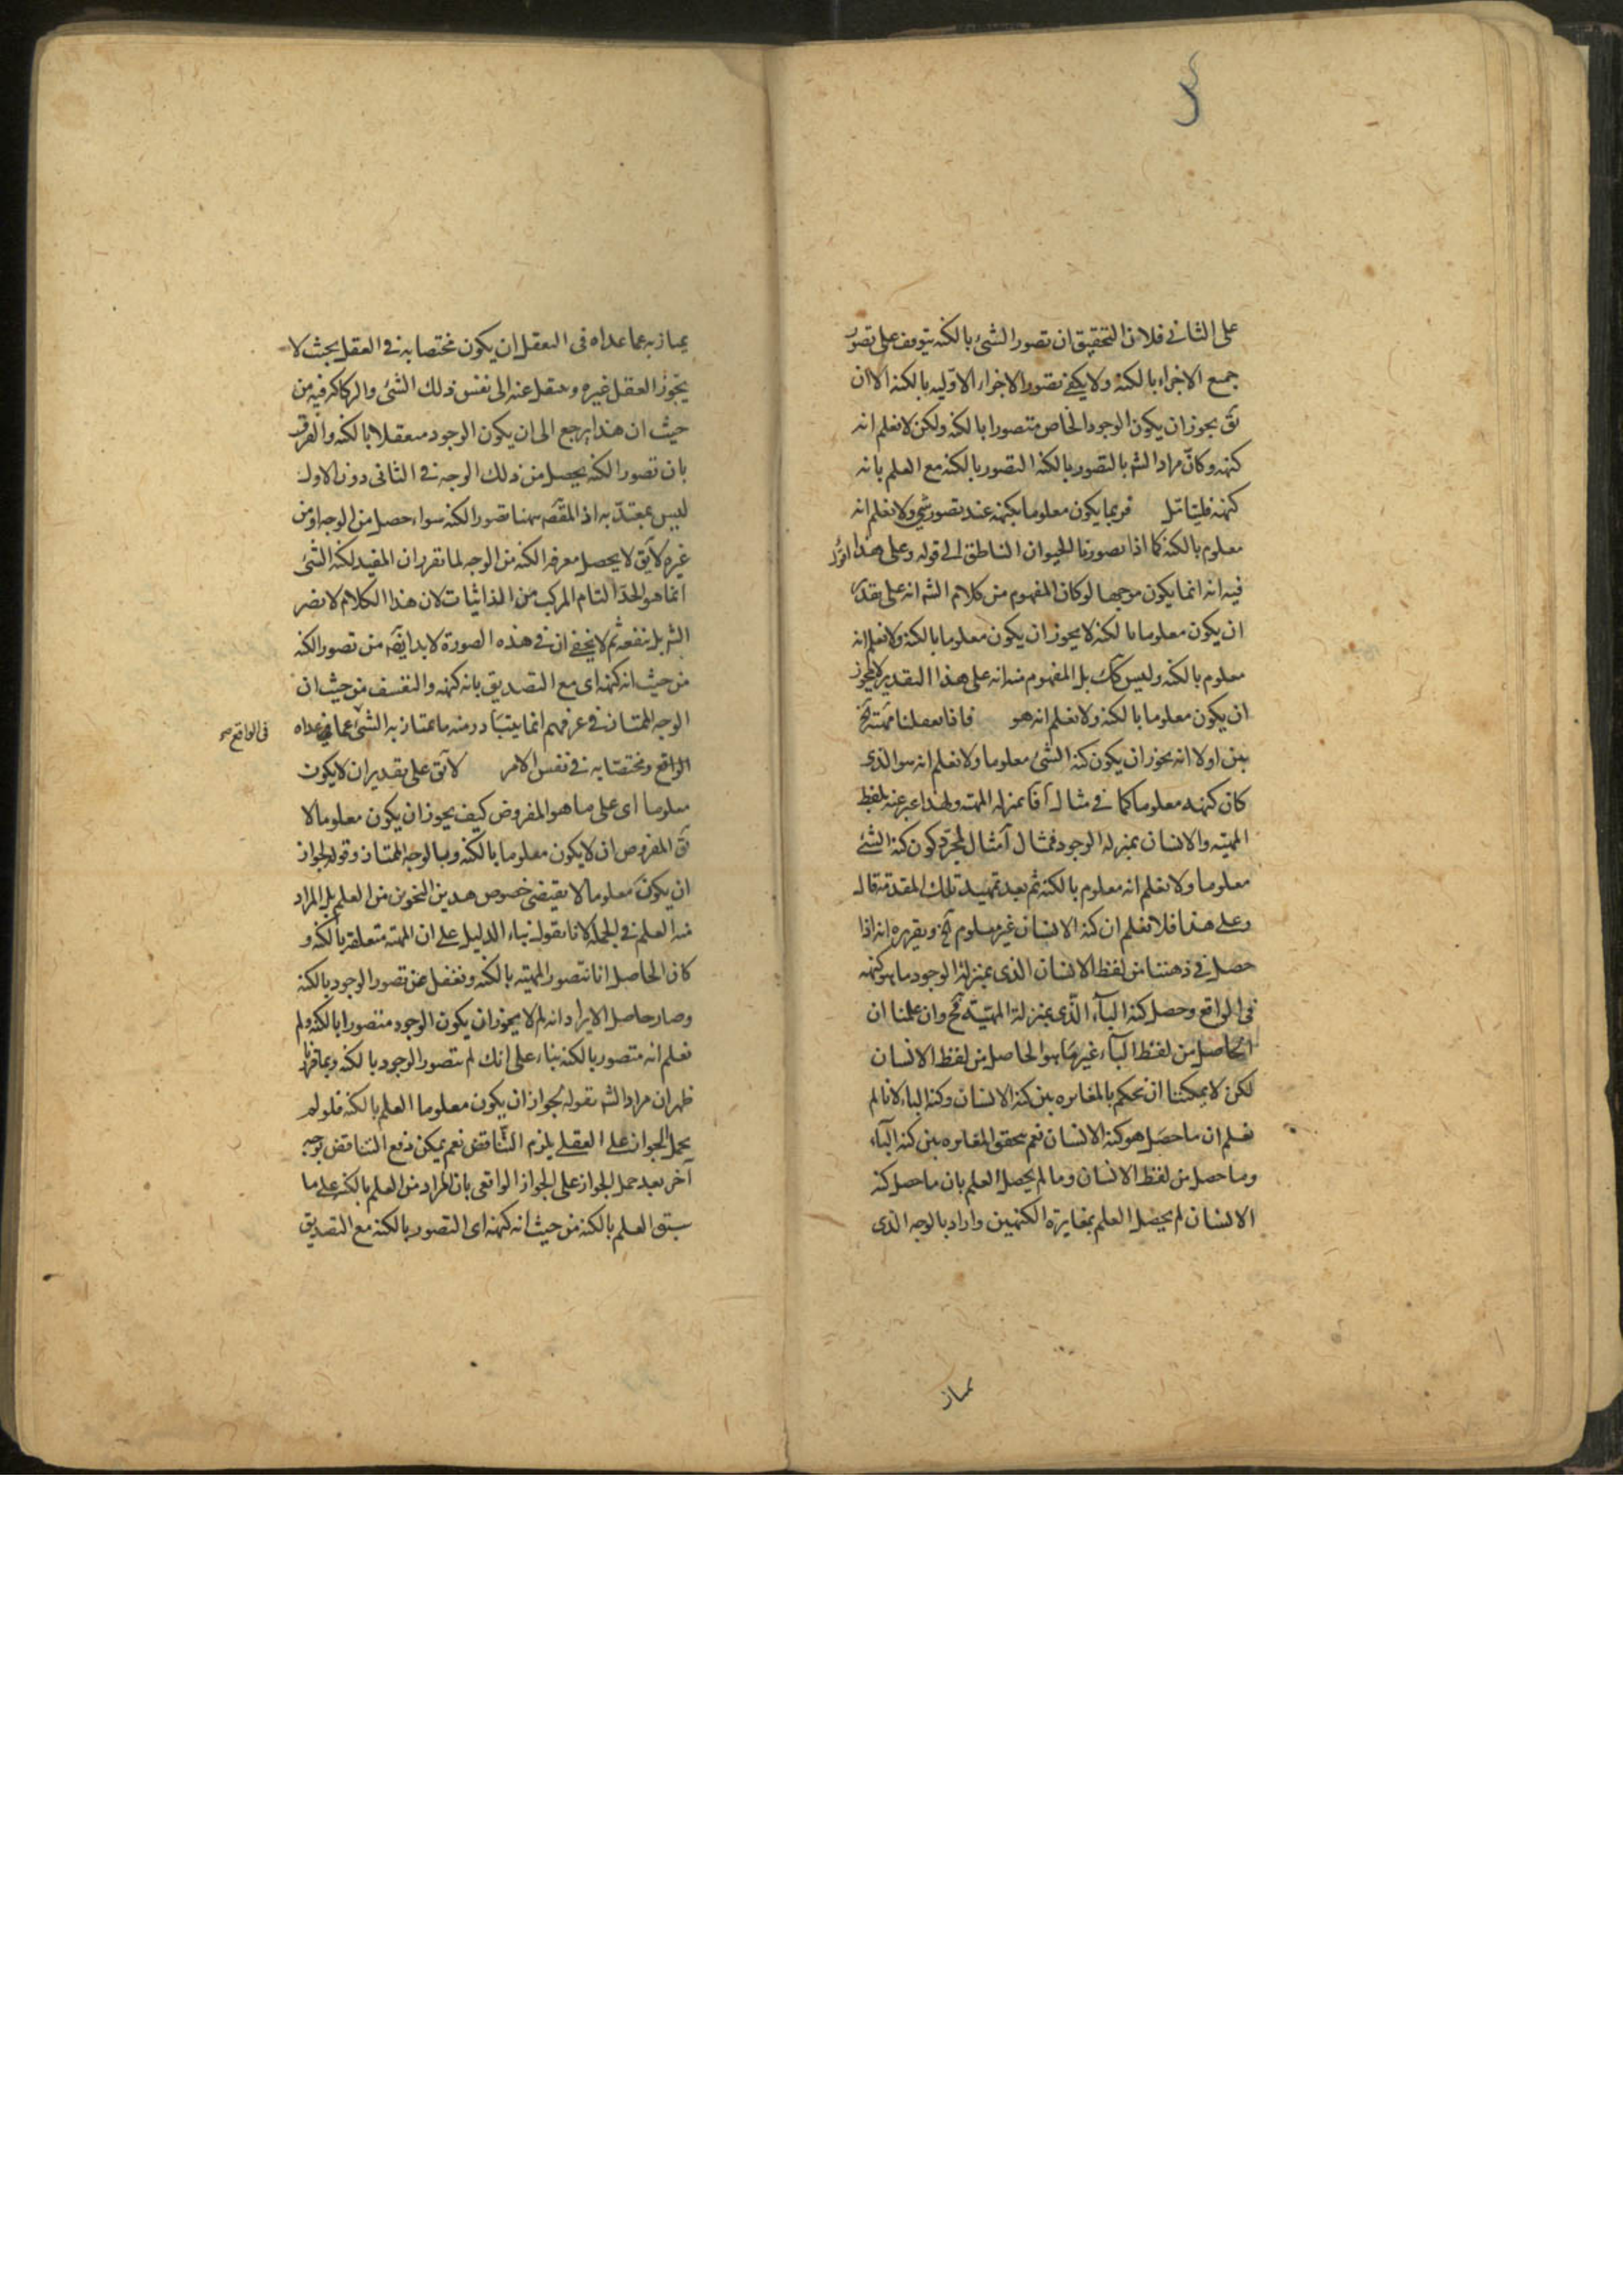 على الثاني فلان التحقيق ان تصور الشئ بالكنه يتوقف على تصور
جميع الاجزاء بالكنه ولا يكفي تصور الاجزاء الاوليه بالكنه الا ان
يق يجوز ان يكون الوجود الخاص متصورا بالكنه ولكن لا نعلم انه
كنهه وكان مراد الشه بالتصور بالكنه التصور بالكنه مع العلم بانه
كنهه فليتامل فربما يكون معلوما بكنهه عند تصور شئ ولا نعلم انه
معلوم بالكنه كما اذا تصورنا الحيوان الناطق الى قوله وعلى هذا
فيه انه انما يكون موجها لو كان المفهوم من كلام الشه انه على تقدير
ان يكون معلوما بالكنه لا يجوز ان يكون معلوما بالكنه ولا نعلم انه
معلوم بالكنه وليس كك بل المفهوم منه انه على هذا التقدير لا يجوز
ان يكون معلوما بالكنه ولا نعلم انه هو فانا تعقلنا مهيته الخ
بين اولا انه يجوز ان يكون كنه الشئ معلوما ولا نعلم انه هو الذى
كان كنهه معلوما كما فى مثال بمنزله المهيه ولهذا عبر عنه بلفظ
المهيه والانسان بمنزله الوجود فمثال لمجرد كون كنه الشئ
معلوما ولا نعلم انه معلوم بالكنه ثم بعد تمهيد تلك المقدمة قال
وعلى هذا فلا نعلم ان كنه الانسان غير معلوم الخ وتقريره انه اذا
حصل فى ذهننا من لفظ الانسان الذى بمنزلة الوجود ما هو كنهه
فى الواقع وحصل كنه الباء الذى بمنزلة المهيه فح وان علمنا ان
الحاصل من لفظ الباء غير ما هو الحاصل من لفظ الانسان
لكن لا يمكننا ان نحكم بالمغايره بين كنه الانسان وكنه الباء لانا لم
نعلم ان ما حصل هو كنه الانسان نعم تحقق المغايره بين كنه الباء
وما حصل من لفظ الانسان وما لم يحصل العلم بان ما حصل كنه
الانسان لم يحصل العلم بمغايرة الكنهين واراد بالوجه الذى
يمتاز
يمتاز به عما عداه فى التعقل ان يكون مختصا به فى العقل بحيث لا
يجوز العقل غيره وينتقل عنه الى نفس ذلك الشئ فيه من
حيث ان هذا يرجع الى ان يكون الوجود متعقلا بالكنه والفرق
بان تصور الكنه يحصل من ذلك الوجه فى الثانى دون الاول
ليس بمعتد به اذ المقصه ههنا تصور الكنه سواء حصل من الوجه او من
غيره لا يق لا يحصل معرفه الكنه من الوجه لما تقرر ان المفيد لكنه الشئ
انما هو الحد التام المركب من الذاتيات لان هذا الكلام لا يضر
الشه بل ينفعه ثم لا يخفى ان فى هذه الصورة لابد ايضه من تصور الكنه
من حيث انه كنهه اى مع التصديق بانه كنهه والتعسف من حيث ان
الوجه الممتاز فى عرفهم انما يتبادر منه ما يمتاز به الشئ عما عداه
فى الواقع صح
الواقع ومختصا به فى نفس الامر لا يق على تقدير ان لا يكون
معلوما اى على ما هو المفروض كيف يجوز ان يكون معلوما لا
يق المفروض ان لا يكون معلوما بالكنه وبالوجه الممتاز وقوله لجواز
ان يكون معلوما لا يقتضى خصوص هذين النحوين من العلم بل المراد
منه العلم فى الجمله لانا نقول بناء الدليل على ان المهيه متعلقه بالكنه و
كان الحاصل انا نتصور المهيه بالكنه ونغفل عن تصور الوجود بالكنه
وصار حاصل الايراد انه لم لا يجوز ان يكون الوجود متصورا بالكنه ولم
نعلم انه متصور بالكنه بناء على انك لم تتصور الوجود بالكنه وبما قررنا
ظهر ان مراد الشه بقوله لجواز ان يكون معلوما العلم بالكنه فلو لم
يحمل الجواز على العقلى يلزم التناقض نعم يمكن دفع التناقض بوجه
آخر بعد حمل الجواز على الجواز الواقعى بان المراد من العلم بالكنه على ما
سبق العلم بالكنه من حيث انه كنهه اى التصور بالكنه مع التصديق